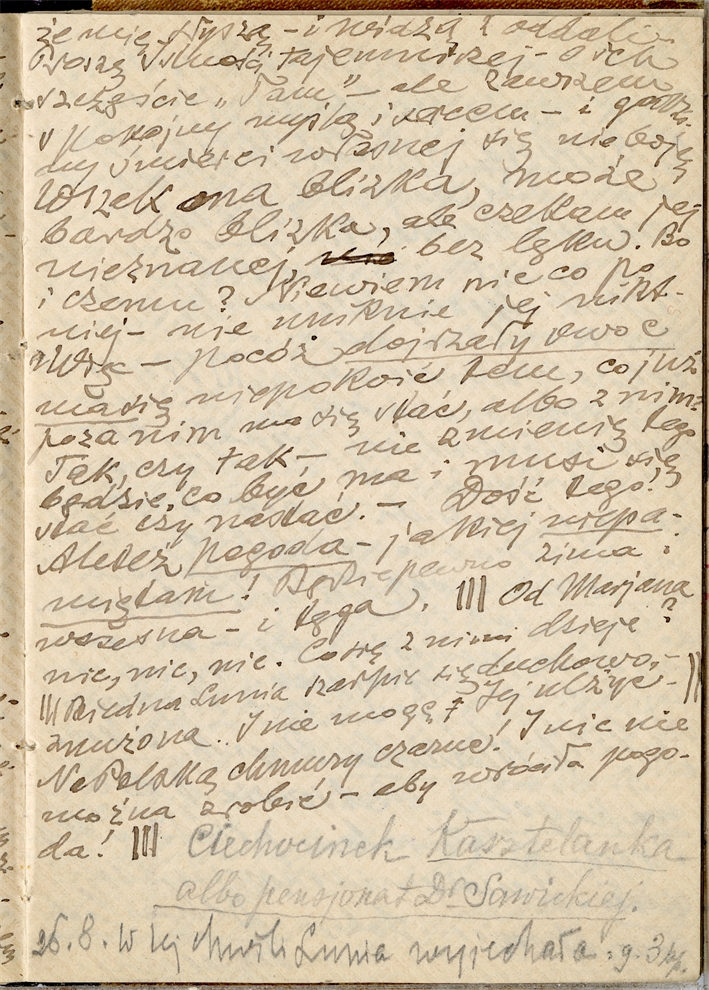 że mię słyszą – i widzą z oddali
Proszę tajemniczej – o ich
szczęście „Tam” – ale zawszem
spokojny myślą i sercem – i
śmierci własnej się nie boję
Wszak ona blizka, może i
bardzo blizka, ale czekam jej
nieznanej, bez lęku. Bo
i czemu? Niewiem nic co po
niej – nie uniknie jej nikt.
Więc – pocóż dojrzały owoc
ma się niepokoić tem, co już
poza nim ma się stać, albo z nim?
Tak, czy tak, – nie zmienię tego
będzie, co być ma i musi się
stać czy nastać. – Dość tego!
Ależeż pogoda – jakiej niepa-
miętam! Będzie pewno zima
wczesna – i tęga. ||| Od Marjana
nic, nic, nic. Co się z nimi dzieje?
||| Biedna Lunia szarpie się duchowo, –
znużona. I nie mogę jej ulżyć – ||
Na Polską chmury czarne! I nic nie
można zrobić – aby wróciła pogo-
da! |||
Ciechocinek Kasztelanka
albo pensjonat Dr Sawickiej.
26. 8. W tej chwili Lunia wyjechała. g. 3